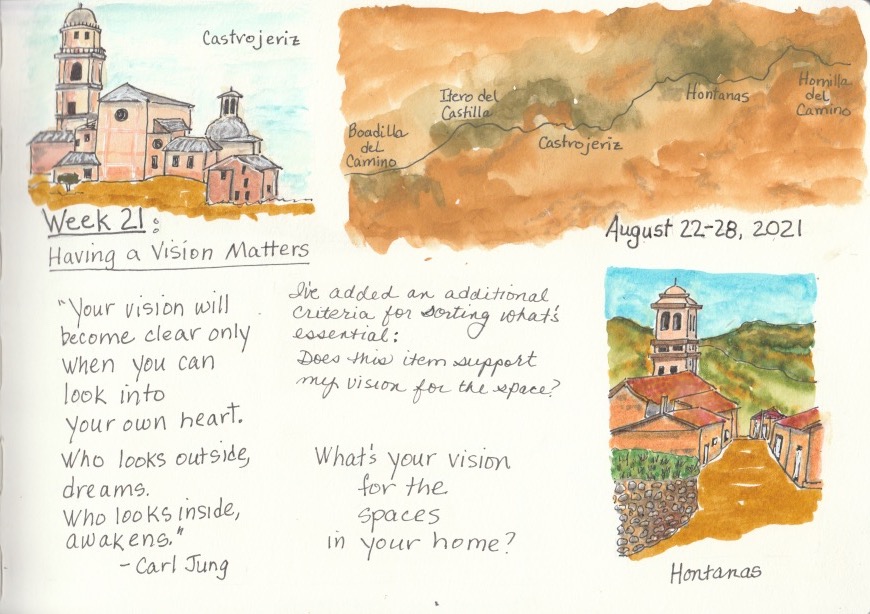 Castrojeriz
Boadilla
del
Camino
Itero del
Castilla
Castrojeriz
Hontanas
Hornilla
del
Camino
August 22-28, 2021
Week 21:
Having a Vision Matters
"Your vision will
become clear only
when you can
look into
your own heart.
Who looks outside,
dreams.
Who looks inside,
awakens."
- Carl Jung
I've added an additional
criteria for sorting what's
essential:
Does this item support
my vision for the space?
What's your vision
for the
spaces
in your home?
Hontanas